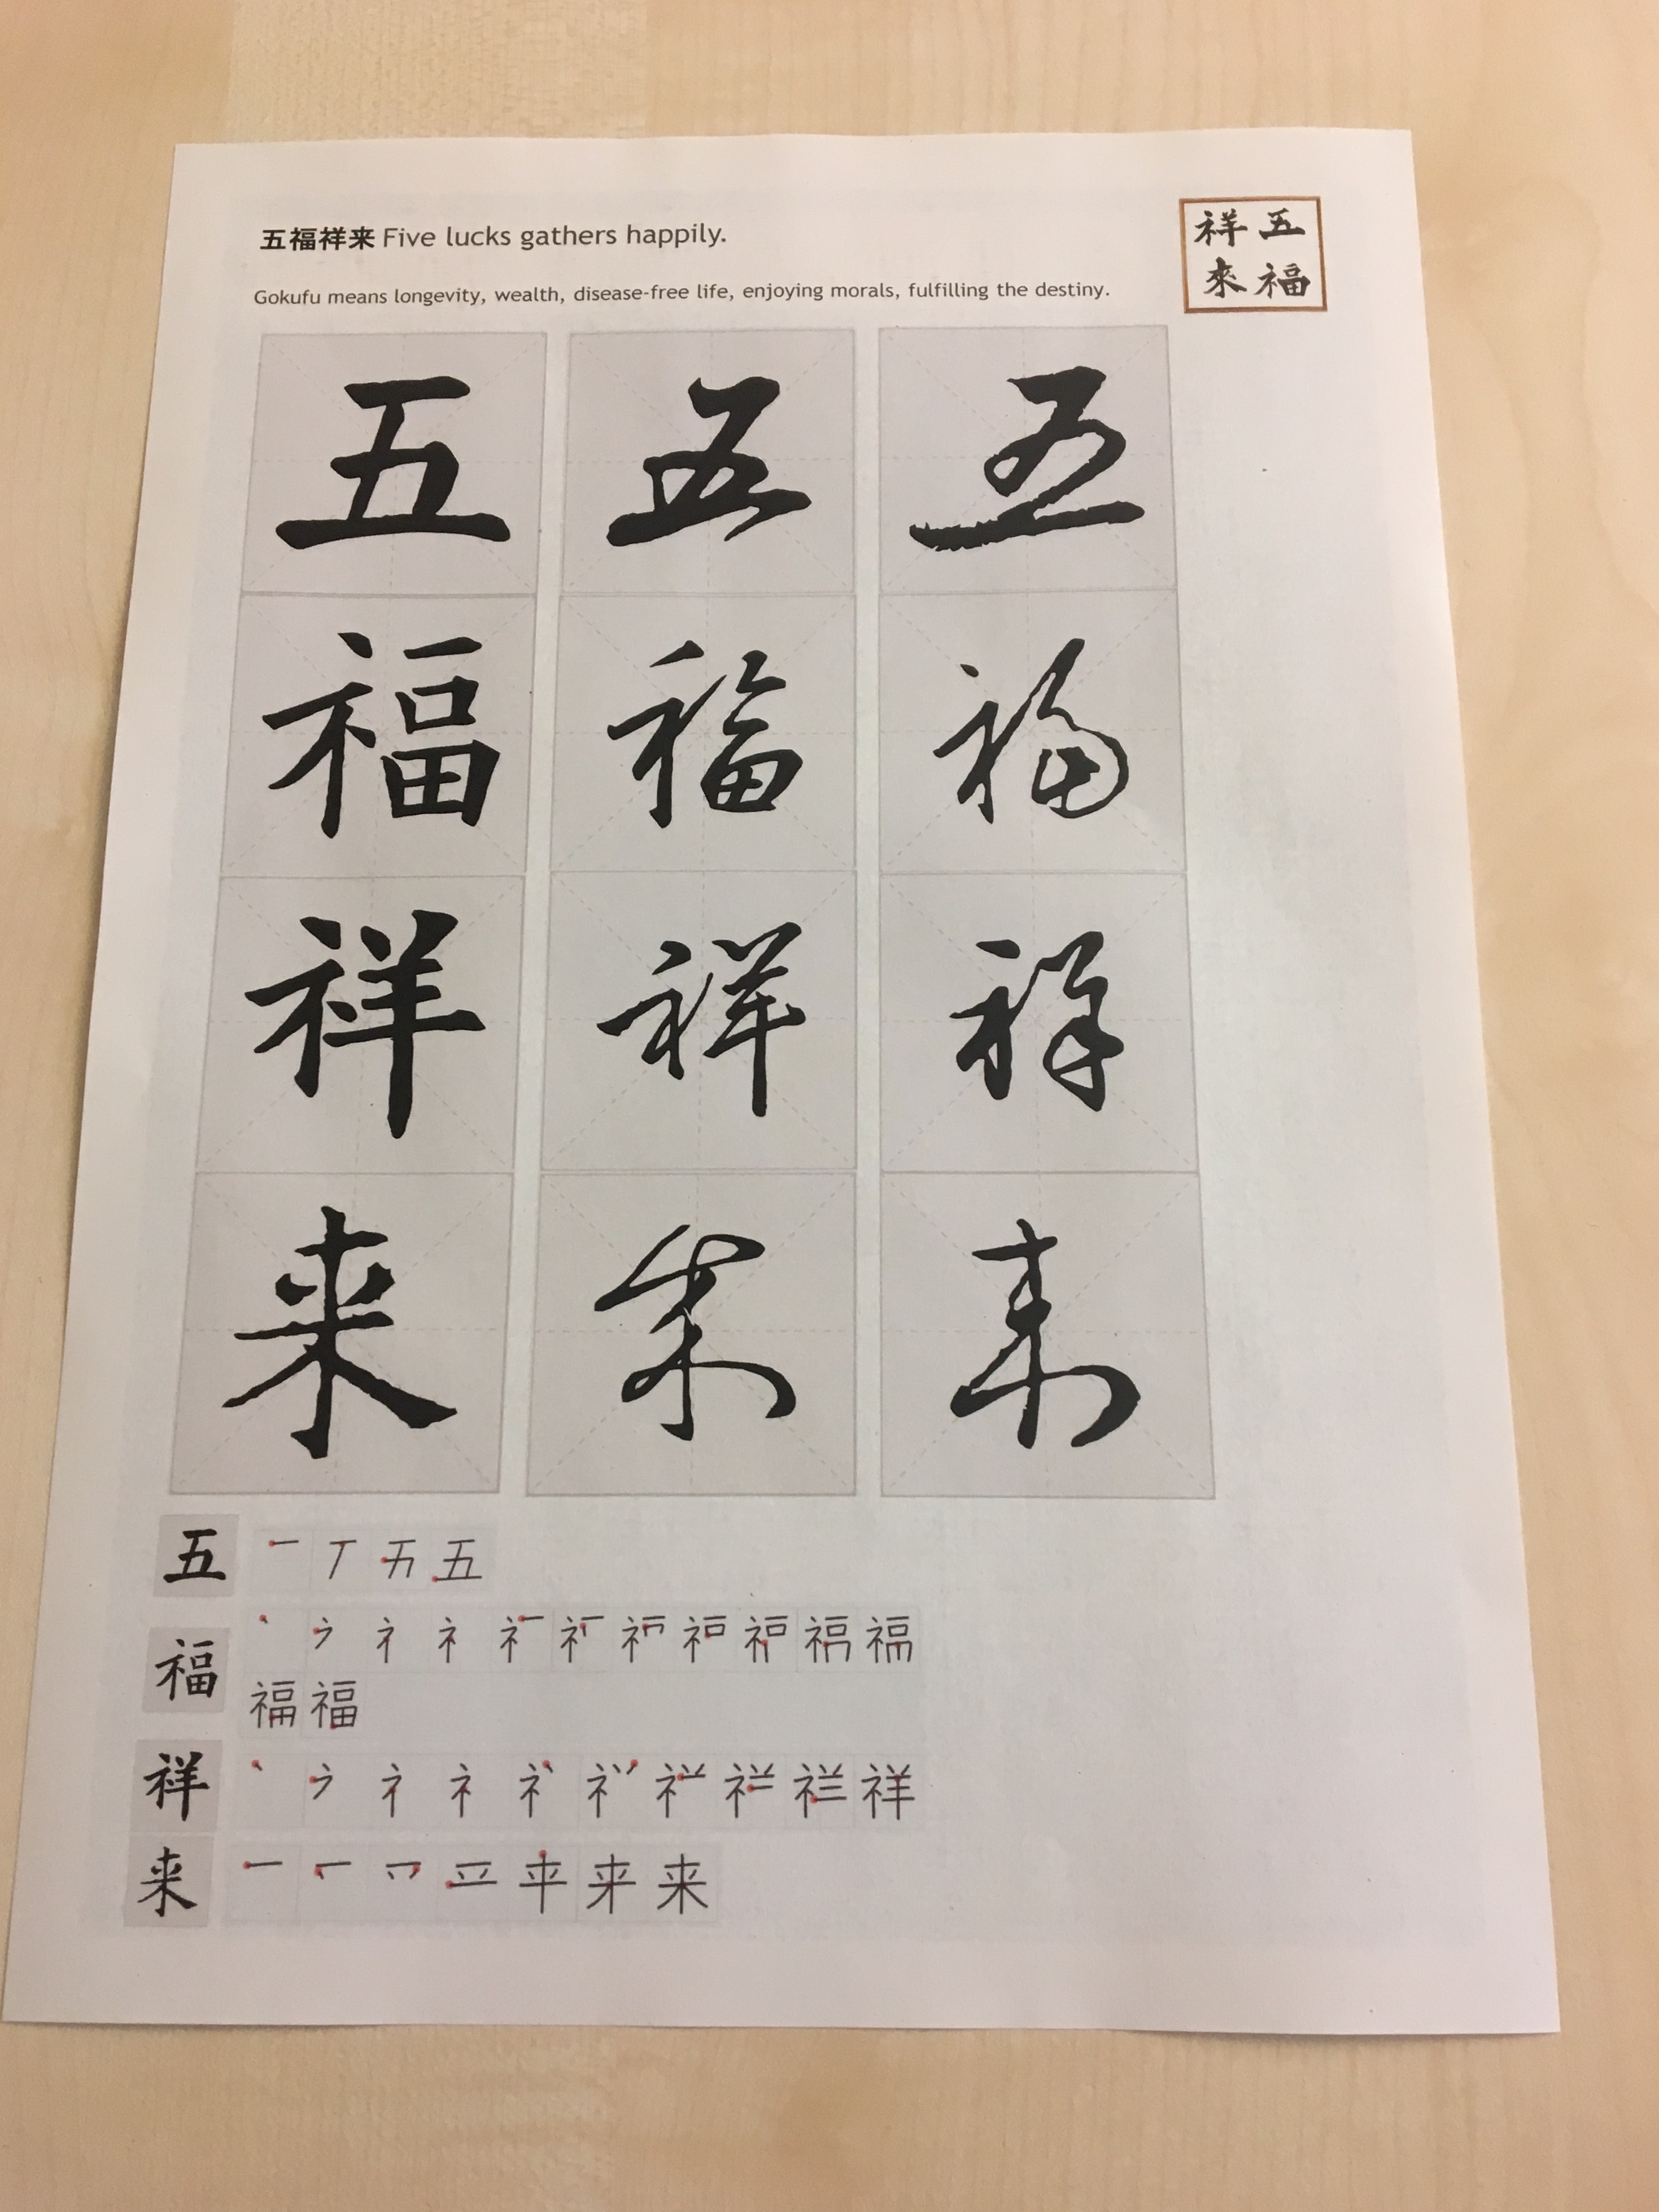 五福祥来 Five lucks gathers happily.
Gokufu means longevity, wealth, disease-free life, enjoying morals, fulfilling the destiny.
五福
祥來
五 五 五
福 福 福
祥 祥 祥
来 来 来
五 一 丅 五
福 福
福 福
祥 祥
来 一 平 来 来